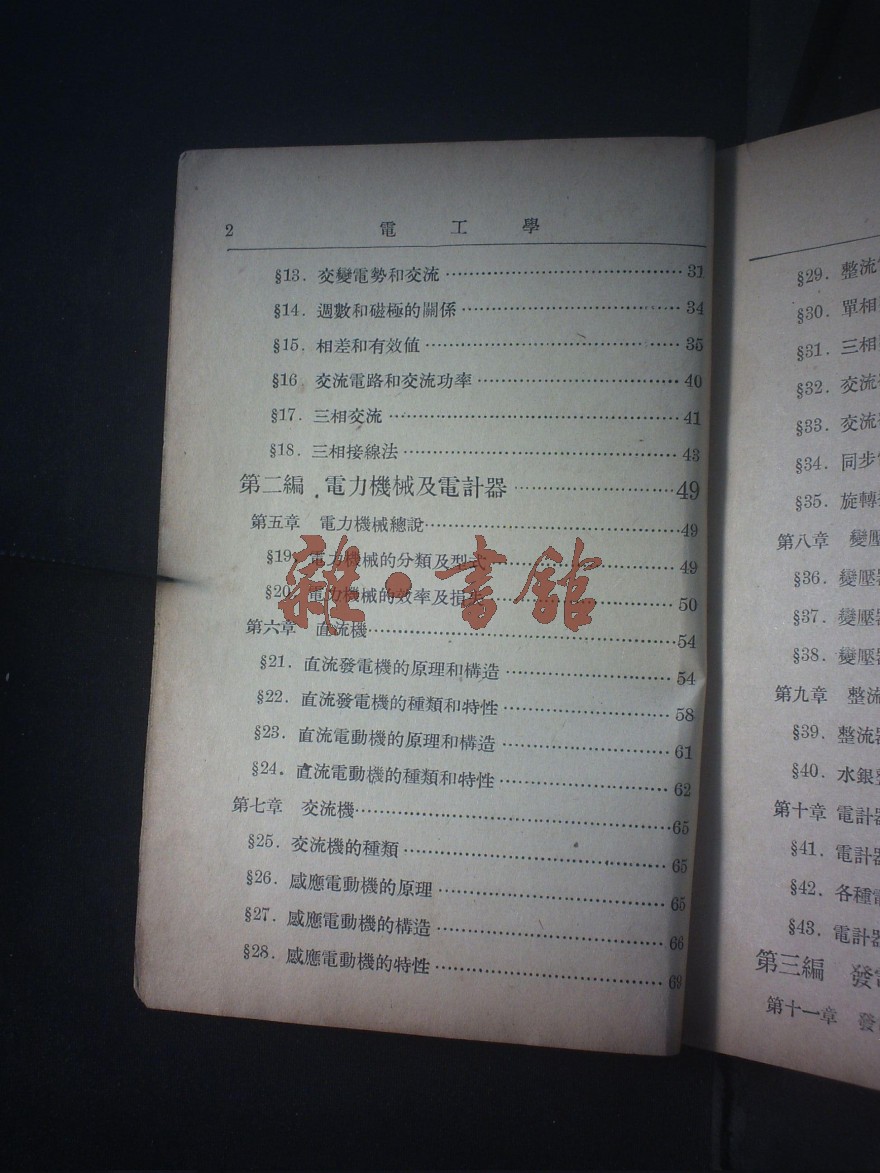 2 電工學
§13. 交變電勢和交流 31
§14. 週數和磁極的關係 34
§15. 相差和有效値 35
§16 交流電路和交流功率 40
§17. 三相交流 41
§18. 三相接線法 43
第二編 電力機械及電計器 49
第五章 電力機械總說 49
§19. 電力機械的分類及型式 49
§20. 電力機械的效率及損失 50
第六章 直流機 54
§21. 直流發電機的原理和構造 54
§22. 直流發電機的種類和特性 58
§23. 直流電動機的原理和構造 61
§24. 直流電動機的種類和特性 62
第七章 交流機 65
§25. 交流機的種類 65
§26. 感應電動機的原理 65
§27. 感應電動機的構造 66
§28. 感應電動機的特性 69
雜·書館
§29. 整流
§30. 單相
§31. 三相
§32. 交流
§33. 交流
§34. 同步
§35. 旋轉
第八章 變壓
§36. 變壓器
§37. 變壓器
§38. 變壓器
第九章 整流
§39. 整流器
§40. 水銀
第十章 電計器
§41. 電計器
§42. 各種電
§43. 電計器
第三編 發
第十一章 發